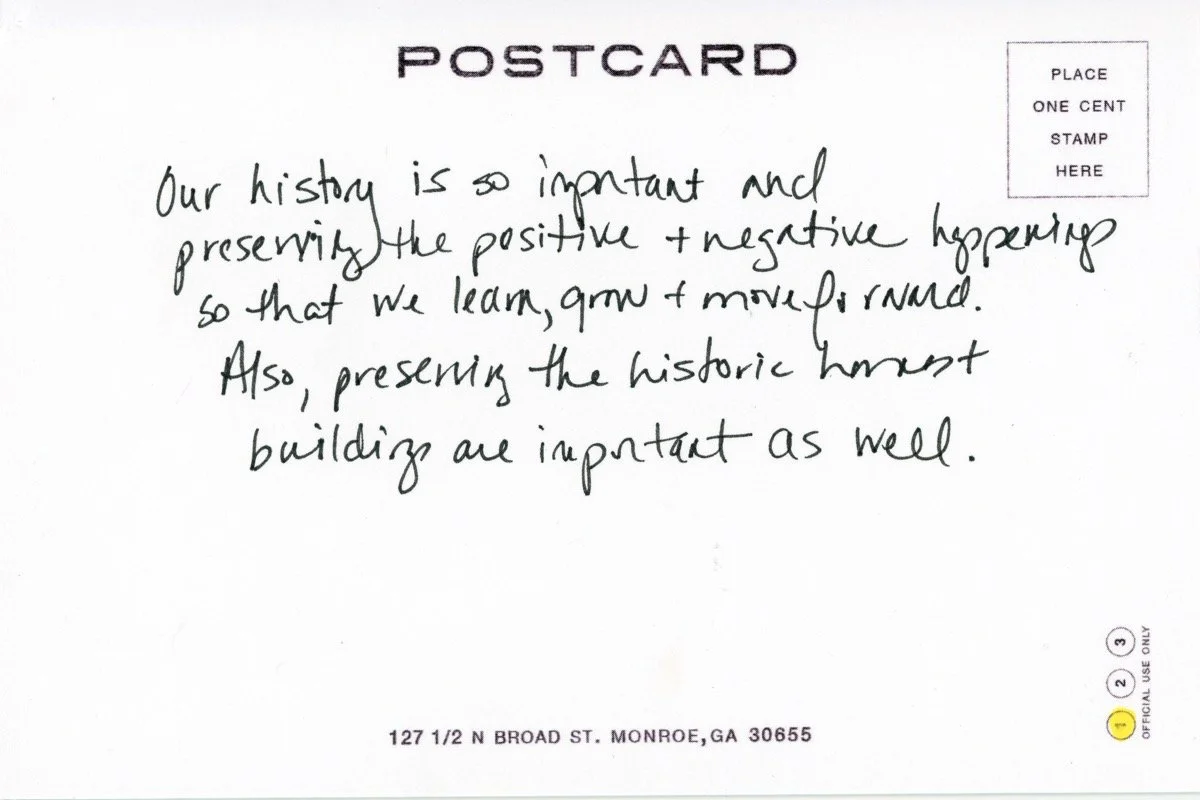 POSTCARD
PLACE
ONE CENT
STAMP
HERE
Our history is so important and
preserving the positive + negative happenings
so that we learn, grow + move forward.
Also, preserving the historic homes +
buildings are important as well.
127 1/2 N BROAD ST. MONROE, GA 30655
1 2 3
OFFICIAL USE ONLY